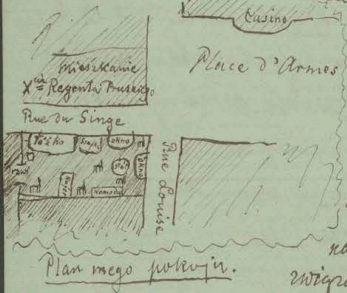 Casino
Place d'Armes
Mieszkanie
Xcia Regenta Pruskiego
Rue du Singe
Łóżko
okno
Stół
okno
Komoda
Rue Louise
Plan mego pokoju.